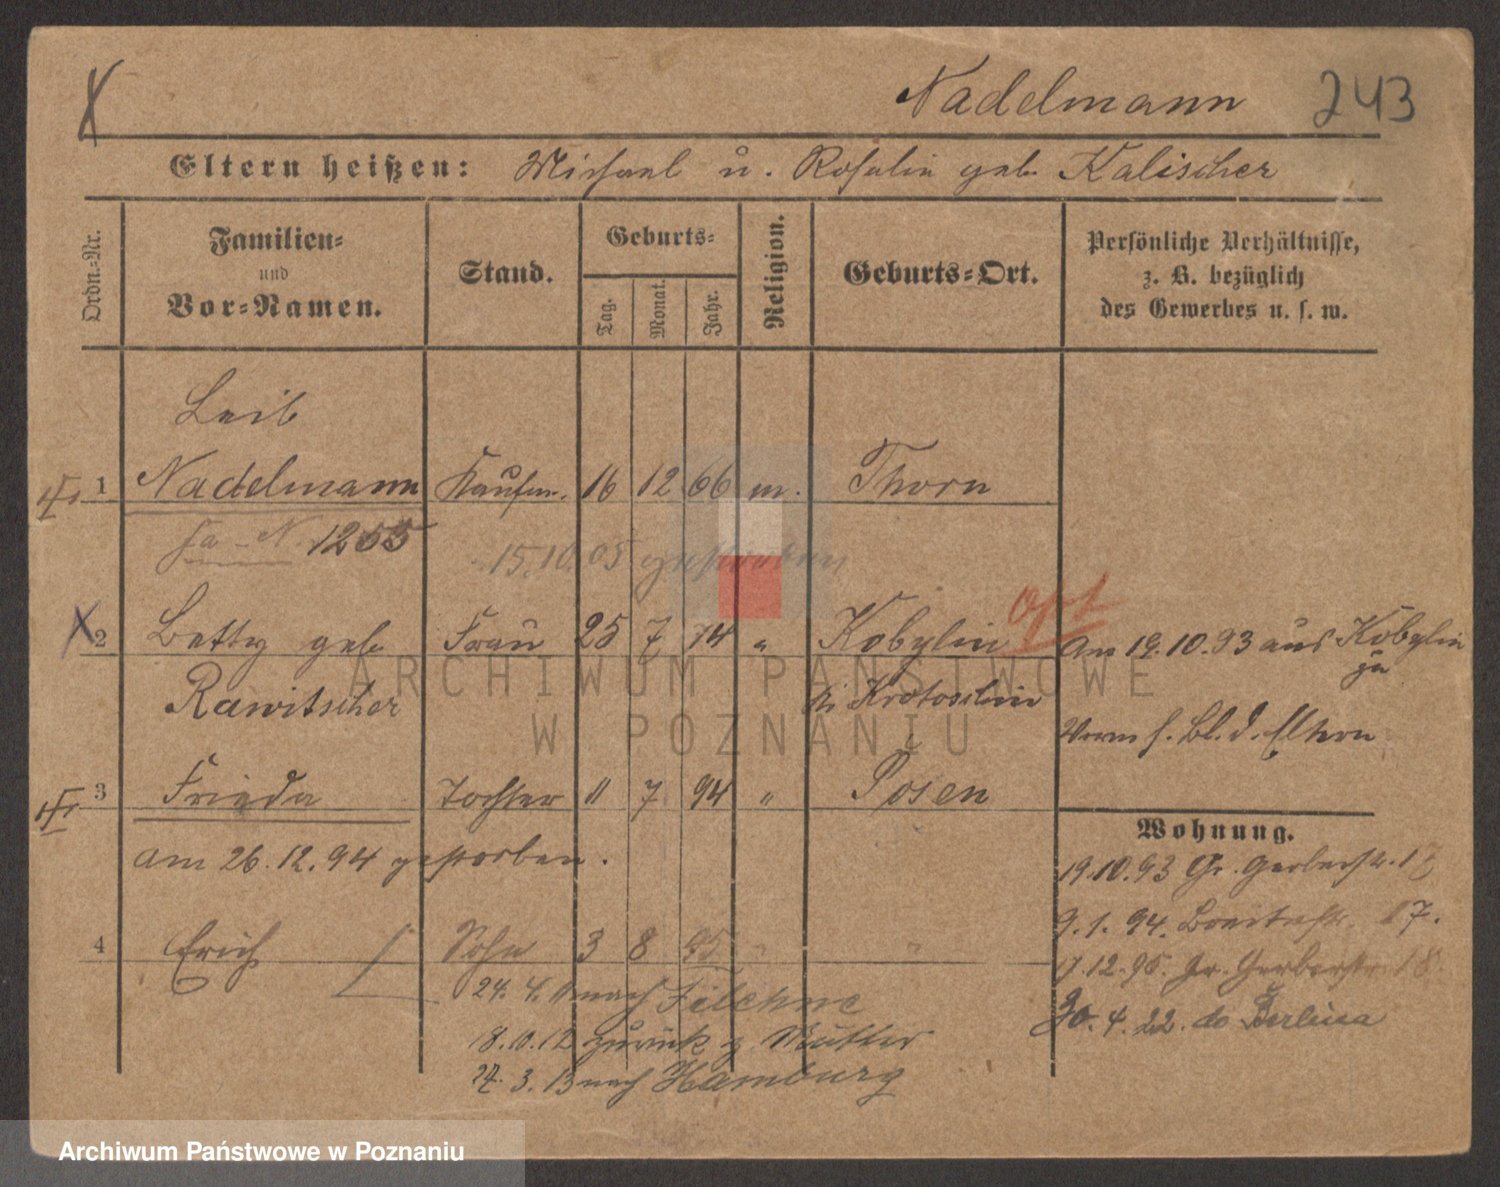 Nadelmann 243
Eltern heißen: Michael u. Rosalie geb. Kalischer
Ordn.-Nr.
Familien-
und
Vor-Namen.
Stand.
Geburts-
Tag.
Monat.
Jahr.
Religion.
Geburts-Ort.
Persönliche Verhältnisse,
z. B. bezüglich
des Gewerbes u. s. w.
Leib
1 Nadelmann Kaufm. 16 12 66 m. Thorn
1255
15.10.05 gestorben
Opt
2 Betty geb. Frau 25 7 74 " Kobylin
Rawitscher Krotoschin
am 19.10.93 aus Kobylin
zu
d. Eltern
3 Frieda Tochter 11 7 94 " Posen
am 26.12.94 gestorben.
Wohnung.
19.10.93 Gr. Gerberstr. 17
9.1.94. Breitestr. 17.
17.12.95. Gr. Gerberstr. 18.
30.4.22. do Berlin
4 Erich Sohn 3 8 95 " "
24.4.11 nach Filehne
18.10.12 zurück z. Mutter
27.3.13 nach Hamburg
ARCHIWUM PAŃSTWOWE
W POZNANIU
Archiwum Państwowe w Poznaniu